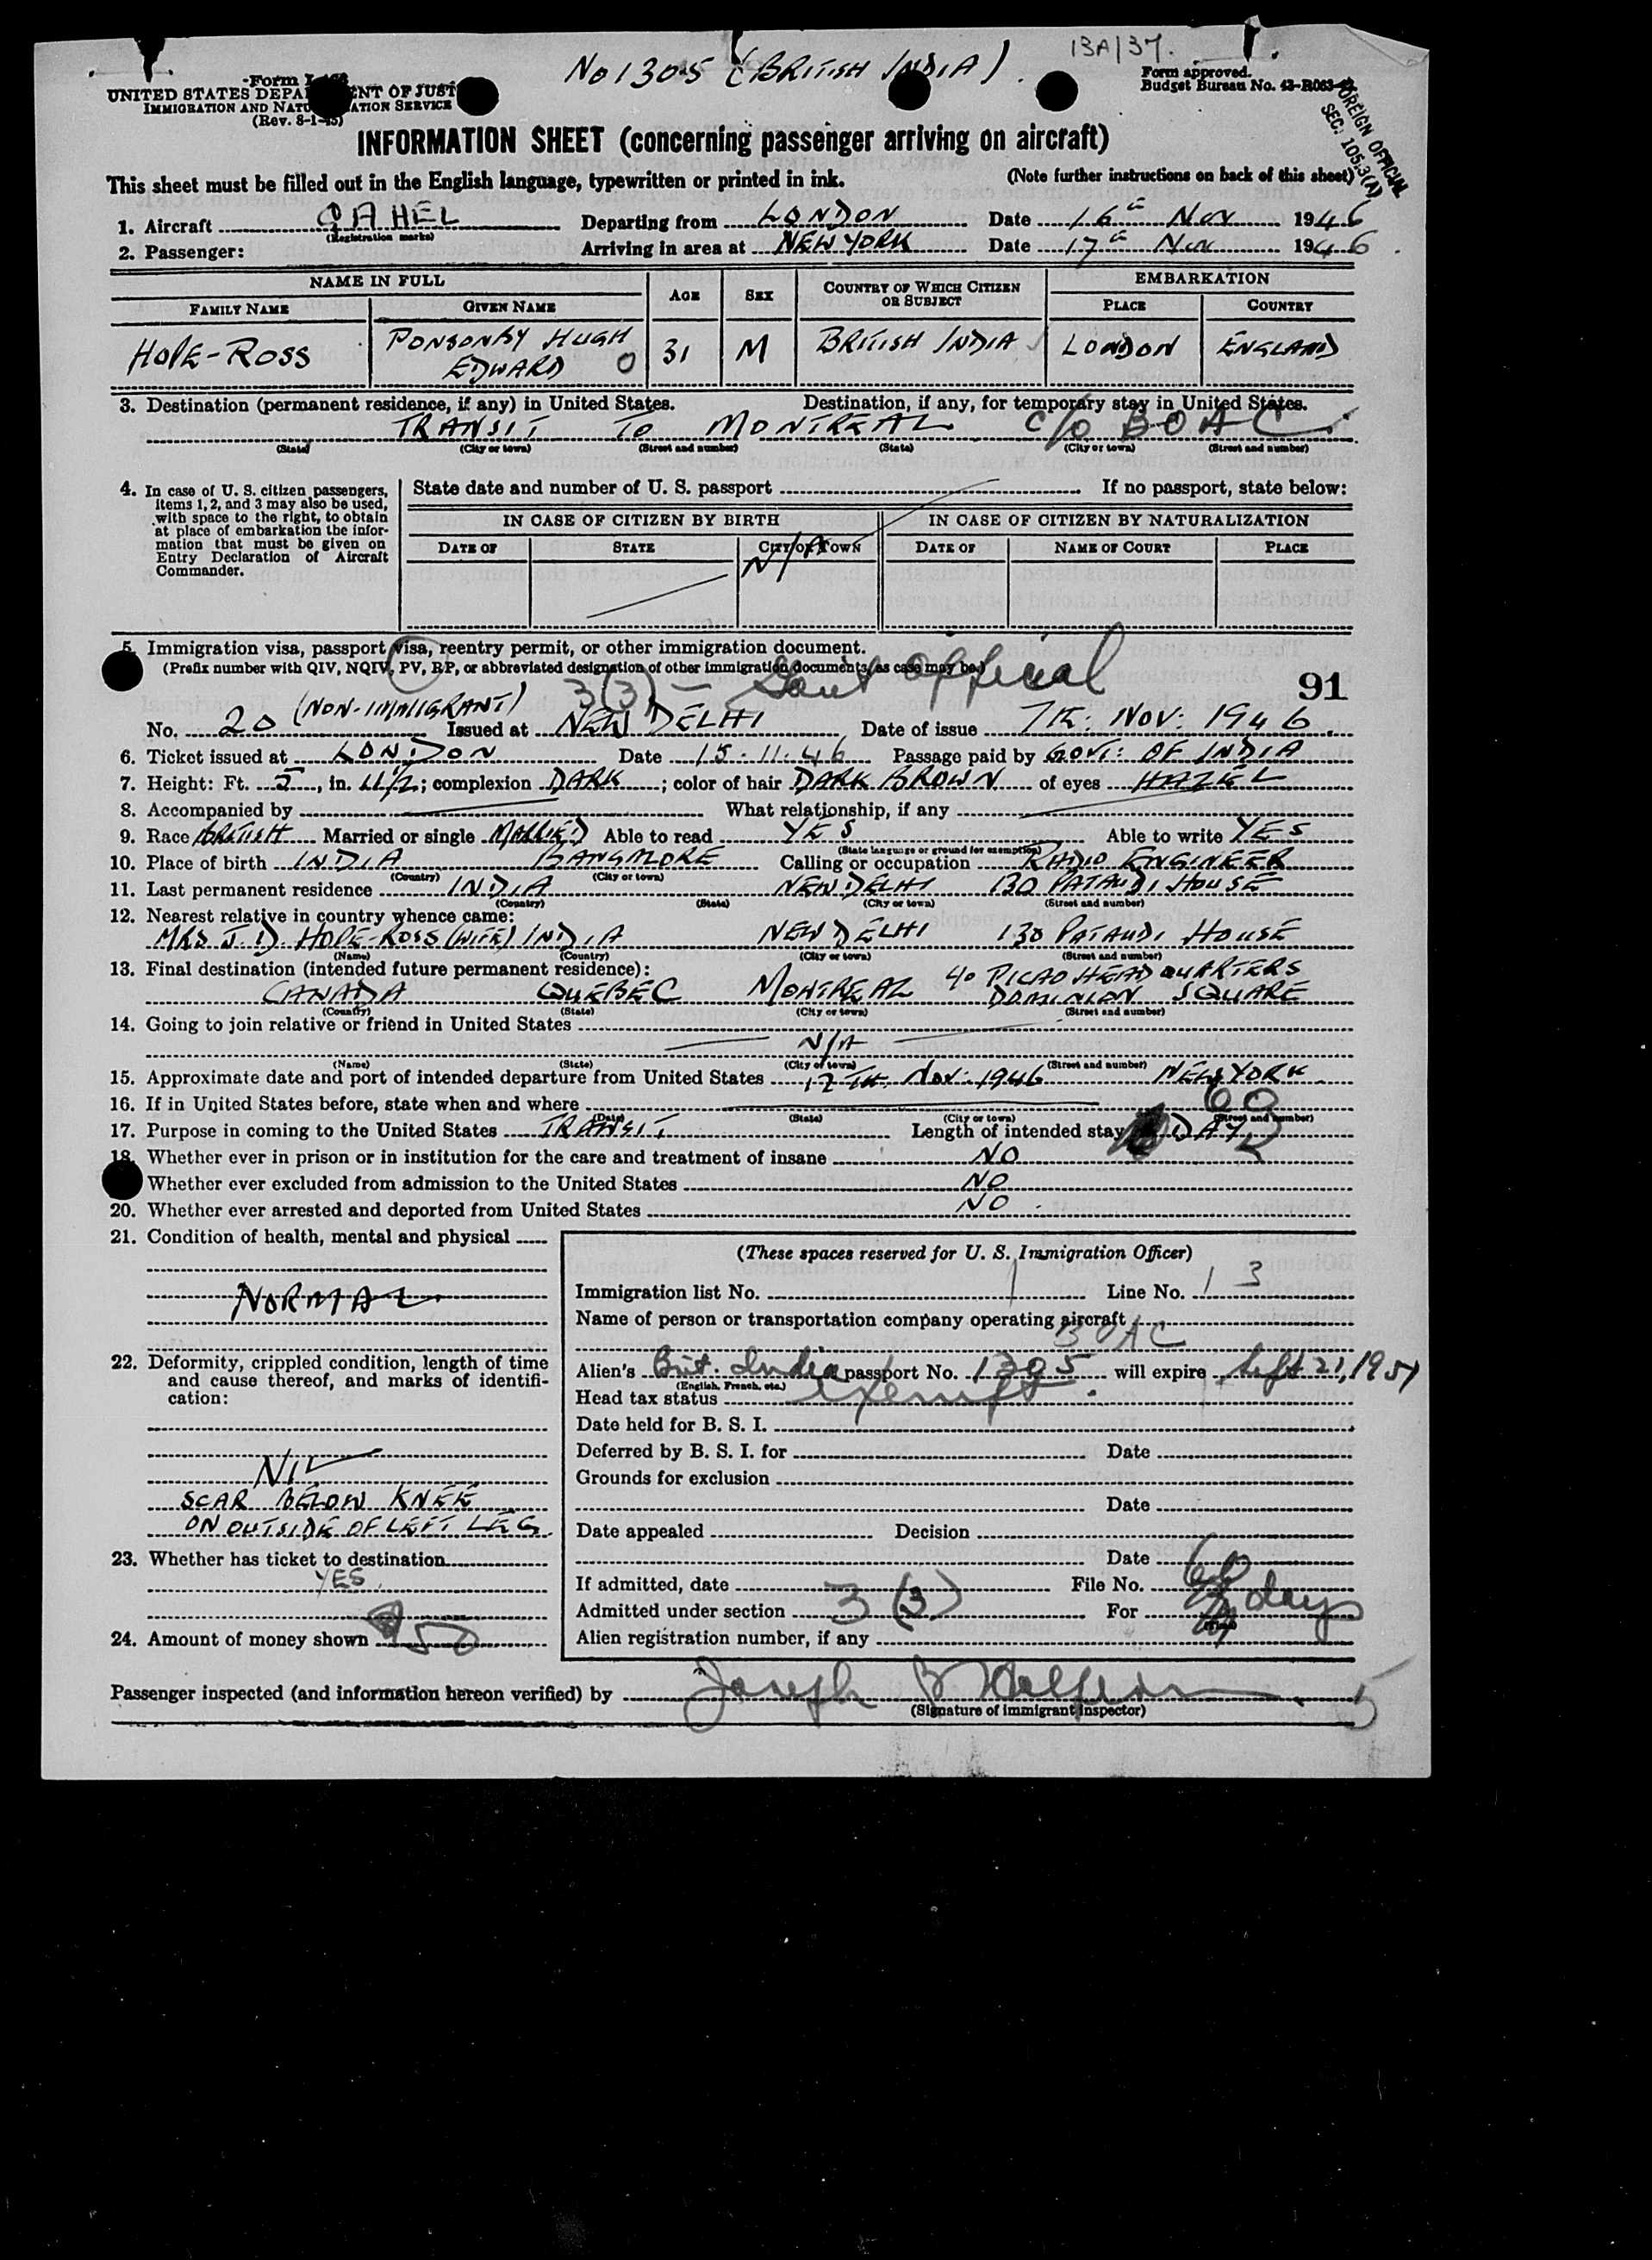 No 1305 (BRITISH INDIA)
13A/37.
Form approved.
Budget Bureau No. 43-R063
FOREIGN OFFICIAL
SEC. 105.3(A)
UNITED STATES DEPARTMENT OF JUSTICE
IMMIGRATION AND NATURALIZATION SERVICE
(Rev. 8-1-45)
INFORMATION SHEET (concerning passenger arriving on aircraft)
This sheet must be filled out in the English language, typewritten or printed in ink. (Note further instructions on back of this sheet)
1. Aircraft GAHEL Departing from LONDON Date 16th Nov 1946
(Registration marks)
2. Passenger: Arriving in area at NEW YORK Date 17th Nov 1946.
NAME IN FULL AGE SEX COUNTRY OF WHICH CITIZEN OR SUBJECT EMBARKATION
FAMILY NAME GIVEN NAME PLACE COUNTRY
HOPE-ROSS PONSONBY HUGH EDWARD 31 M BRITISH INDIA LONDON ENGLAND
3. Destination (permanent residence, if any) in United States. Destination, if any, for temporary stay in United States.
TRANSIT TO MONTREAL c/o BOAC
(State) (City or town) (Street and number) (State) (City or town) (Street and number)
4. In case of U. S. citizen passengers, items 1, 2, and 3 may also be used, with space to the right, to obtain at place of embarkation the information that must be given on Entry Declaration of Aircraft Commander.
State date and number of U. S. passport If no passport, state below:
IN CASE OF CITIZEN BY BIRTH IN CASE OF CITIZEN BY NATURALIZATION
DATE OF STATE CITY OR TOWN DATE OF NAME OF COURT PLACE
N/A
5. Immigration visa, passport visa, reentry permit, or other immigration document.
(Prefix number with QIV, NQIV, PV, RP, or abbreviated designation of other immigration documents, as case may be.)
3(3) - Govt Official
91
No. 20 (NON-IMMIGRANT) Issued at NEW DELHI Date of issue 7TH: NOV: 1946.
6. Ticket issued at LONDON Date 15.11.46 Passage paid by GOVT: OF INDIA
7. Height: Ft. 5, in. 11½; complexion DARK; color of hair DARK BROWN of eyes HAZEL
8. Accompanied by What relationship, if any
9. Race BRITISH Married or single MARRIED Able to read YES Able to write YES
(State language or ground for exemption)
10. Place of birth INDIA BANGALORE Calling or occupation RADIO ENGINEER
(Country) (City or town)
11. Last permanent residence INDIA NEW DELHI 130 PATAUDI HOUSE
(Country) (State) (City or town) (Street and number)
12. Nearest relative in country whence came:
MRS J. D. HOPE-ROSS (WIFE) INDIA NEW DELHI 130 PATAUDI HOUSE
(Name) (Country) (City or town) (Street and number)
13. Final destination (intended future permanent residence):
CANADA QUEBEC MONTREAL c/o PICAO HEADQUARTERS DOMINION SQUARE
(Country) (State) (City or town) (Street and number)
14. Going to join relative or friend in United States
N/A
(Name) (State) (City or town) (Street and number)
15. Approximate date and port of intended departure from United States 17TH. Nov: 1946 NEW YORK
16. If in United States before, state when and where
(Date) (State) (City or town) (Street and number)
17. Purpose in coming to the United States TRANSIT Length of intended stay 60 DAYS
18. Whether ever in prison or in institution for the care and treatment of insane NO
Whether ever excluded from admission to the United States NO
20. Whether ever arrested and deported from United States NO.
21. Condition of health, mental and physical
NORMAL
22. Deformity, crippled condition, length of time and cause thereof, and marks of identification:
NIL
SCAR BELOW KNEE
ON OUTSIDE OF LEFT LEG.
23. Whether has ticket to destination
YES.
24. Amount of money shown 50
(These spaces reserved for U. S. Immigration Officer)
Immigration list No. 1 Line No. 3
Name of person or transportation company operating aircraft
BOAC
Alien's Brit. India passport No. 1305 will expire Sept 21, 1951
(English, French, etc.)
Head tax status exempt.
Date held for B. S. I.
Deferred by B. S. I. for Date
Grounds for exclusion
Date
Date appealed Decision
Date
If admitted, date File No.
Admitted under section 3 (3) For 60 days
Alien registration number, if any
Passenger inspected (and information hereon verified) by Joseph B.
(Signature of immigrant inspector)
5